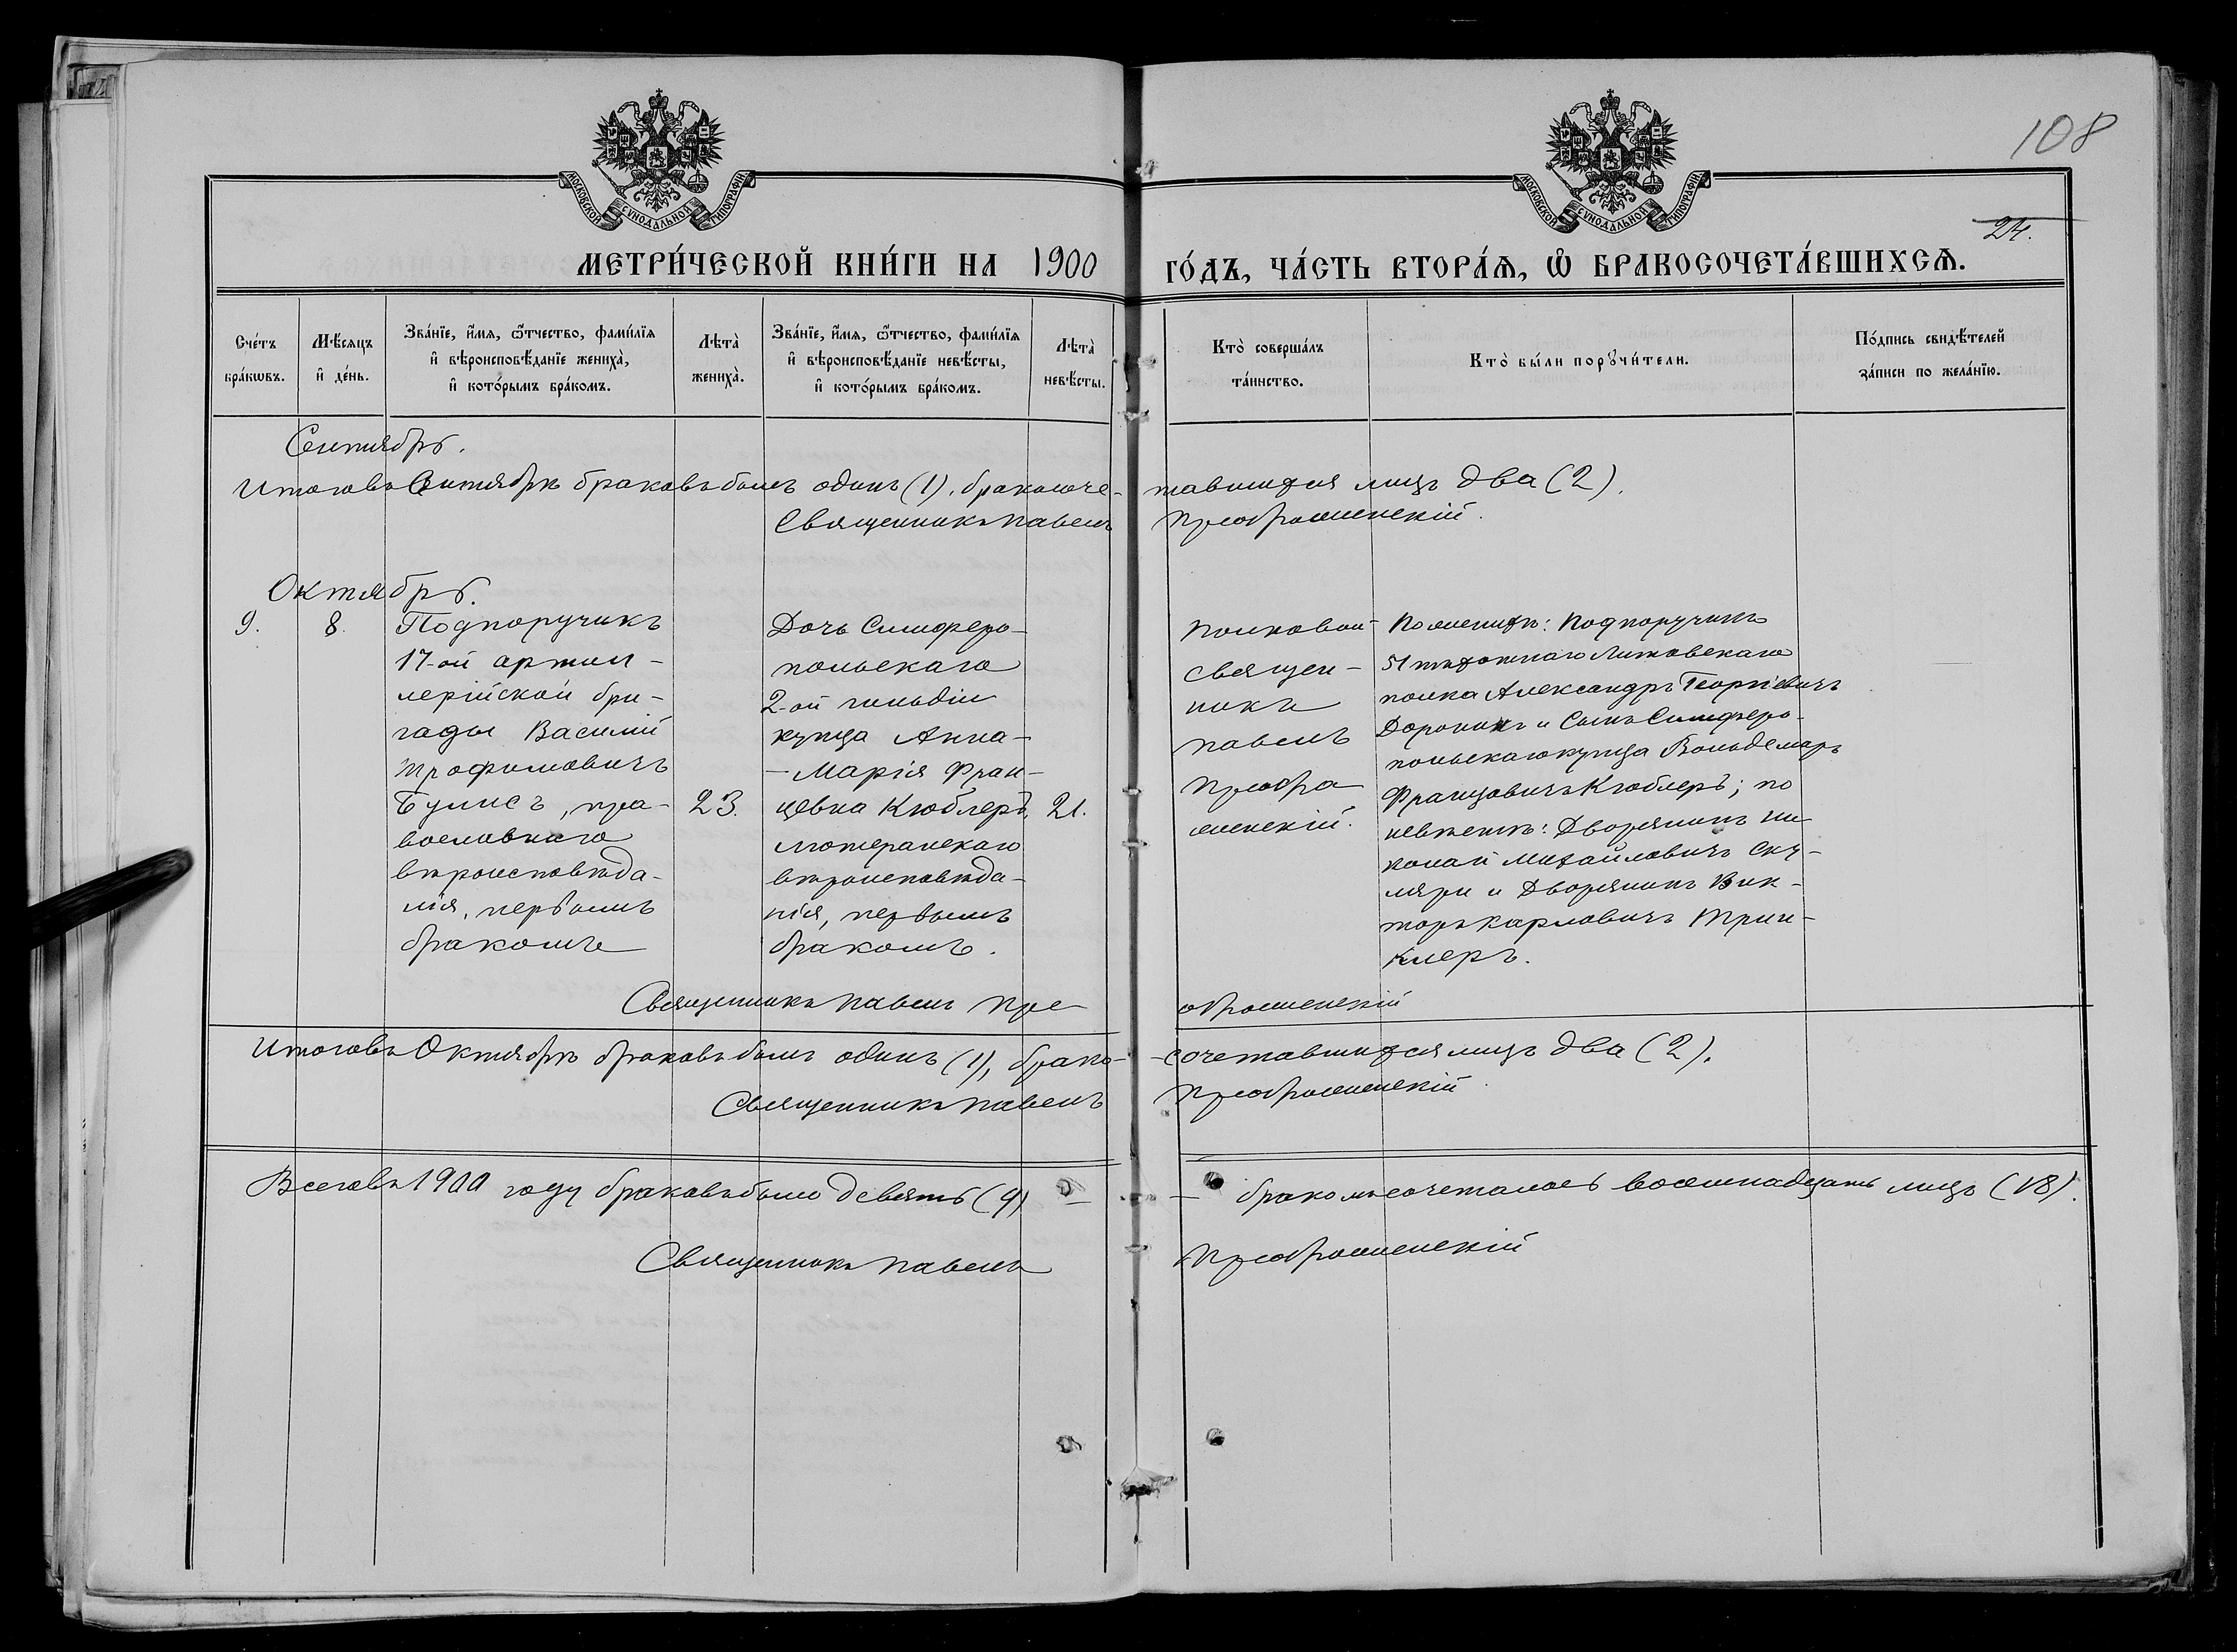 108
24.
МОСКОВСКОЙ СѴНОДАЛЬНОЙ ТИПОГРАФІИ
МОСКОВСКОЙ СѴНОДАЛЬНОЙ ТИПОГРАФІИ
МЕТРИ́ЧЕСКОЙ КНИ́ГИ НА 1900 ГО́ДЪ, ЧА́СТЬ ВТОРА́Ѧ, Ѡ҆ БРАКОСОЧЕТА́ВШИХСѦ.
Сче́тъ
бра́кѡвъ.
Мѣ́сѧцъ
и҆ де́нь.
Зва́нїе, и҆́мѧ, ѻ҆́тчество, фами́лїѧ
и҆ вѣроисповѣ́данїе женихà,
и҆ кото́рымъ бра́комъ.
Лѣтà
женихà.
Зва́нїе, и҆́мѧ, ѻ҆́тчество, фами́лїѧ
и҆ вѣроисповѣ́данїе невѣ́сты,
и҆ кото́рымъ бра́комъ.
Лѣтà
невѣ́сты.
Ктò соверша́лъ
та́инство.
Ктò бы́ли порꙋчи́тели.
По́дпись свидѣ́телей
за́писи по жела́нїю.
Сентябрь.
Итого въ Сентябрѣ браковъ былъ одинъ (1), бракосоче-тавшихся лицъ два (2).
Священникъ Павелъ Преображенскій.
Октябрь.
9.
8.
Подпоручикъ
17-ой артил-
лерійской бри-
гады Василій
Трофимовичъ
Булисъ, пра-
вославнаго
вѣроисповѣда-
нія, первымъ
бракомъ
23.
Дочь Симферо-
польскаго
2-ой гильдіи
купца Анна-
-Марія Фран-
цевна Кюблеръ,
лютеранскаго
вѣроисповѣда-
нія, первымъ
бракомъ.
21.
Полковой
священ-
никъ
Павелъ
Преобра
женскій.
По женихѣ: Подпоручикъ
51 пѣхотнаго Литовскаго
полка Александръ Георгіевичъ
Доронинъ и Сынъ Симферо-
польскаго купца Вольдемаръ
Францовичъ Кюблеръ; по
невѣстѣ: Дворянинъ Ни
колай Михайловичъ Ску-
ляри и Дворянинъ Вик-
торъ Карловичъ Трин-
клеръ.
Священникъ Павелъ Преображенскій
Итого въ Октябрѣ браковъ былъ одинъ (1), брако-сочетавшихся лицъ два (2).
Священникъ Павелъ Преображенскій.
Всего въ 1900 году браковъ было девять (9) — — бракомъ сочеталось восемнадцать лицъ (18).
Священникъ Павелъ Преображенскій